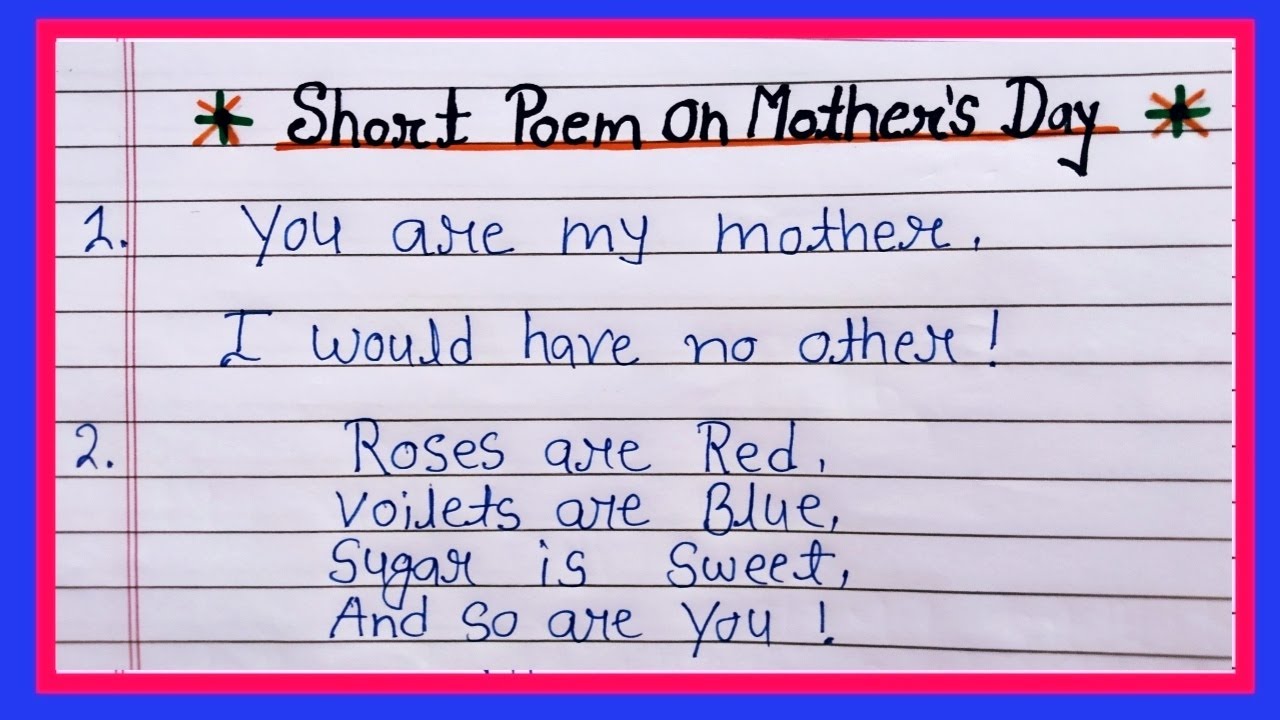 Short Poem On Mother's Day
1. You are my mother,
I would have no other!
2. Roses are Red,
Voilets are Blue,
Sugar is Sweet,
And So are You!